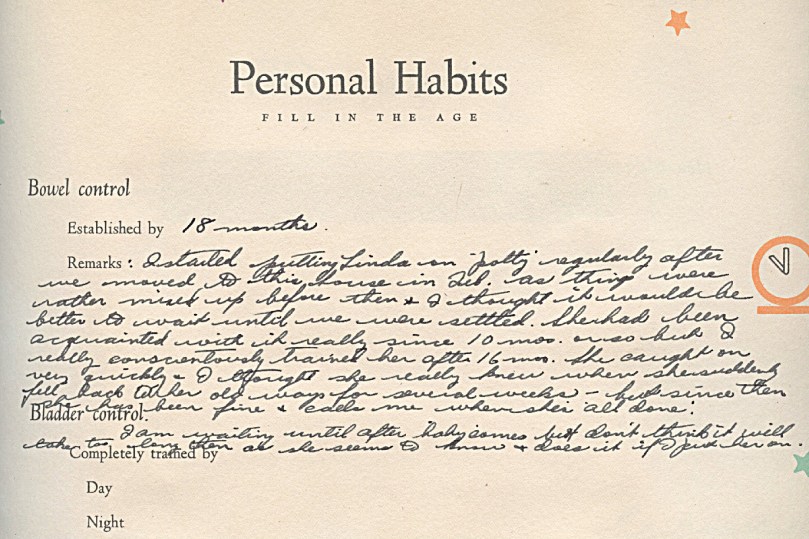 Personal Habits
FILL IN THE AGE
Bowel control
Established by 18 months.
Remarks: I started putting Linda on "potty" regularly after
we moved to this house in Feb. as things were
rather mixed up before then & I thought it would be
better to wait until we were settled. She had been
acquainted with it really since 10 mos. or so but I
really conscientously trained her after 16 mos. She caught on
very quickly & I thought she really knew when she suddenly
fell back to her old ways for several weeks - but since then
she has been fine & calls me when she's all done.
Bladder control.
I am waiting until after baby comes but don't think it will
take too long then as she seems to know & does it if I put her on.
Completely trained by
Day
Night